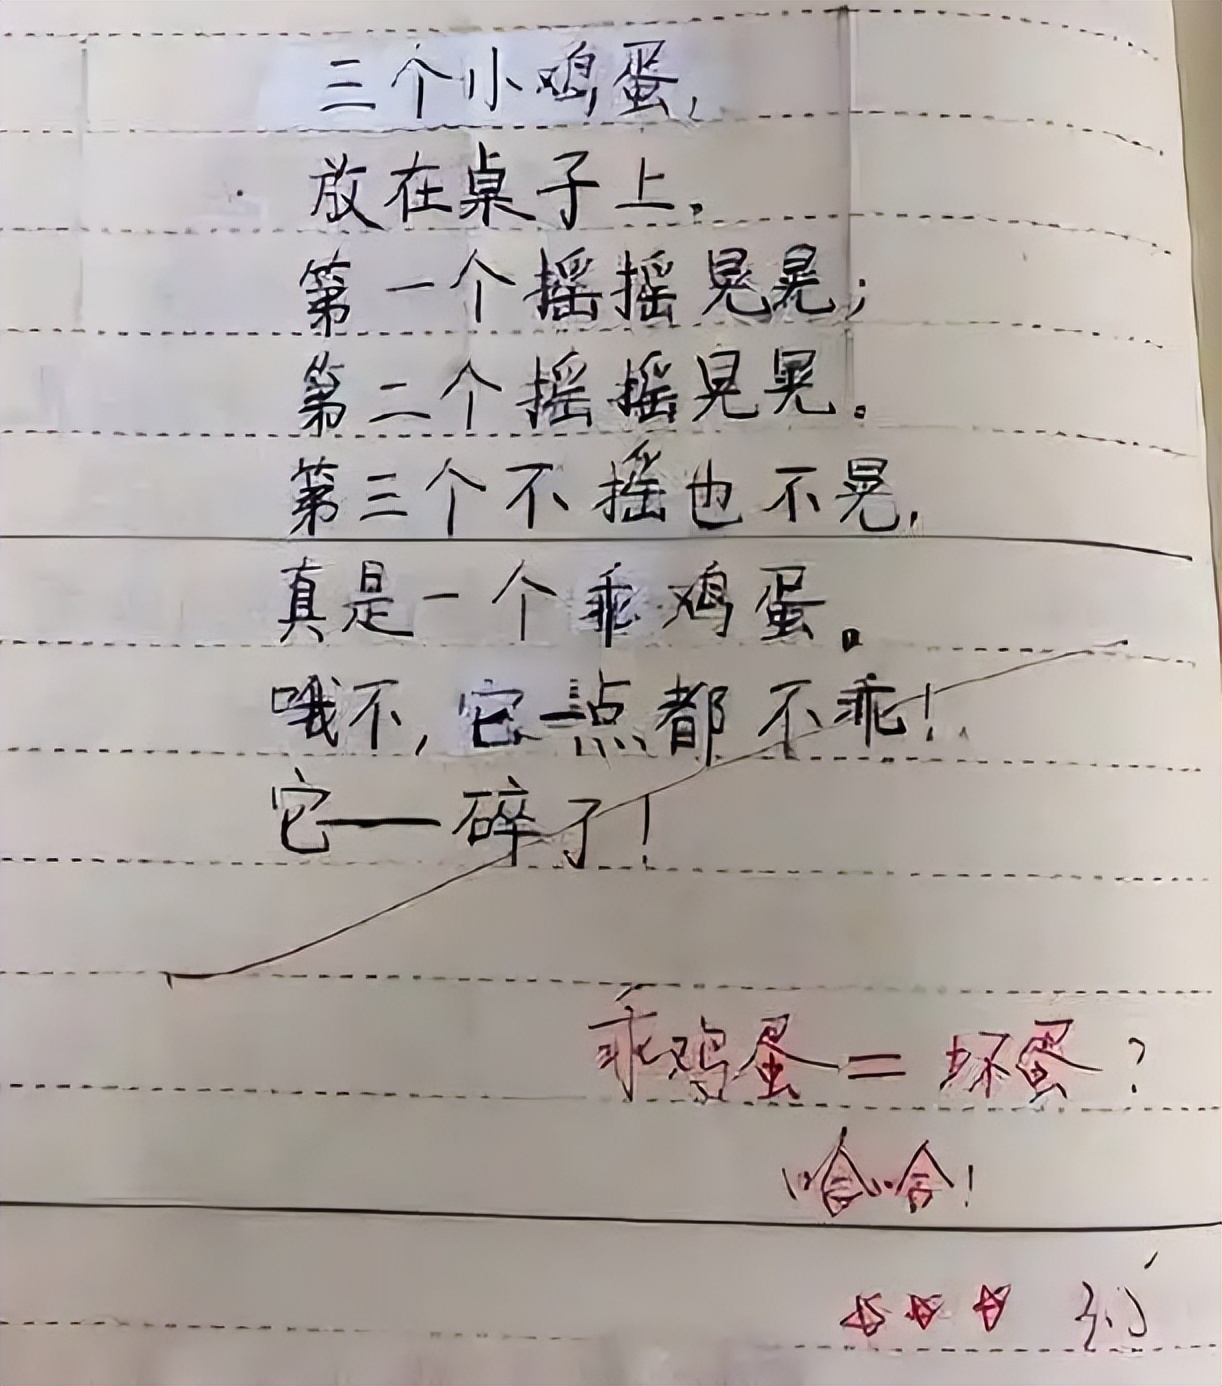 三个小鸡蛋,
放在桌子上。
第一个摇摇晃晃;
第二个摇摇晃晃。
第三个不摇也不晃,
真是一个乖鸡蛋。
哦不,它一点都不乖!
它——碎了!
乖鸡蛋=坏蛋?
哈哈!
☆☆☆